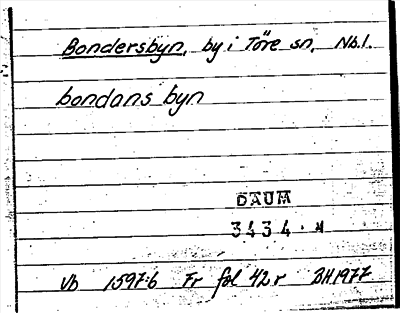 Bondersbyn, by i Töre sn, Nb.l.
bondans byn
DAUM
3434
Vb 1597:6 Fr fol 42 r BH 1977